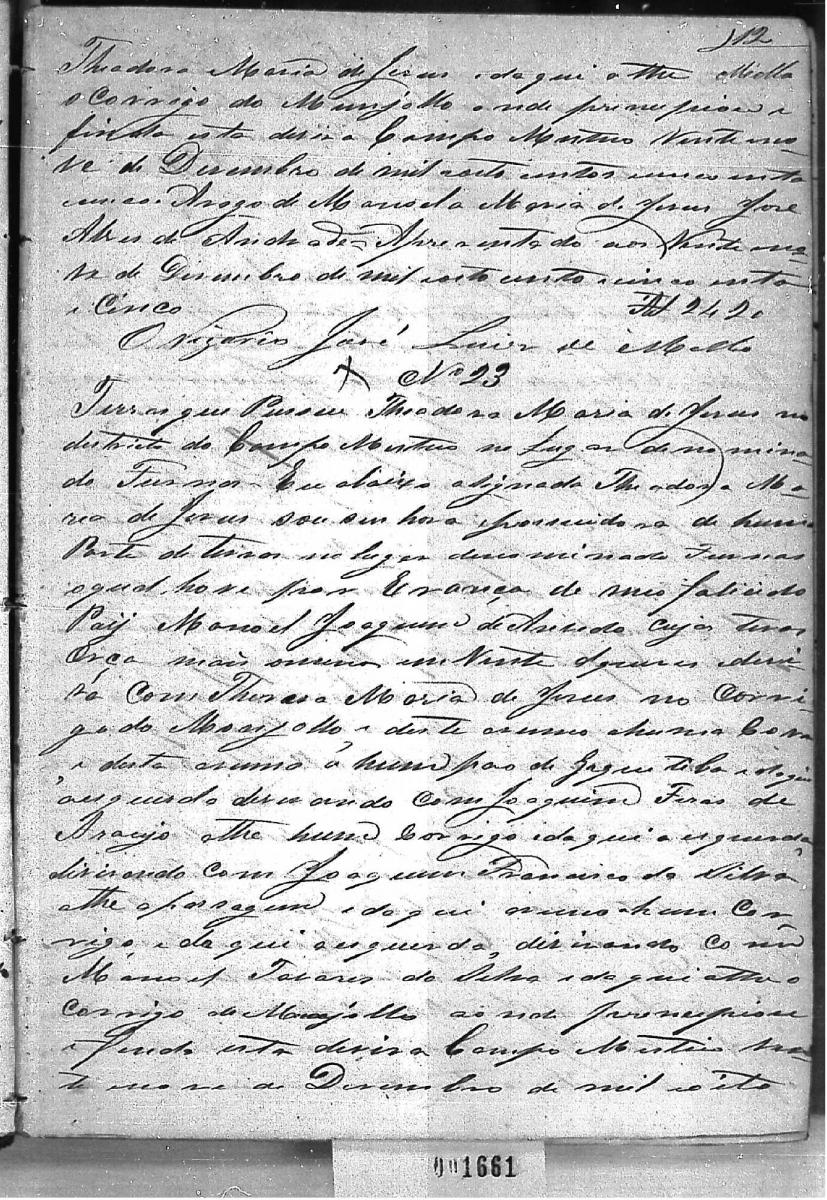 12
Theadora Maria de Jesus e daqui athe Molla
o Corrigo do Munjollo onde principiou e
finda esta deviza Campo Mistico Vinte no-
ve de Dizembro de mil oito centos cincoenta
cinco. Arogo de Manoela Maria de Jesus Jose
Alves de Andrade = Aprezentado aos Vinte no-
ve de Dizembro de mil oito cento cincoenta
e Cinco 2420
O Vigario José Luiz de Mello
No 23
Terras que Possue Theadora Maria de Jesus no
districto do Campo Mistico no Lugar denomina-
do Furnas Eu abaixo asignada Theadora Ma-
ria de Jesus sou senhora possuidora de huma
Parte de terras no lugar denominado Furnas
o qual houve por Erança de meo falicido
Paij Manoel Joaquim de Azevedo cujas terras
Orça mais ou menos em Vinte alqueres e devi-
za com Thereza Maria de Jesus no Corri-
go do Monjollo, e deste arumo a huma Cova
e desta arumo a hum pao de Jaquitiba e daqui
a esquerda devizando com Joaquim Feras de
Araujo athe hum Corrigo e daqui a esquerda,
divizando com Joaquim Francisco da Silva
athe a passagem e daqui arumo hum Cor-
rigo e daqui a esquerda, divizando com
Manoel Tavares da Silva e daqui athe o
Corrigo do Munjollo aonde principiou
e finda esta deviza Campo Mistico vin-
te nove de Dezembro de mil oito
001661